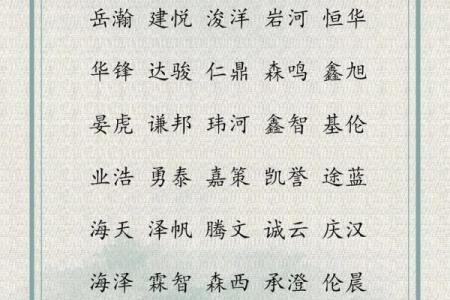 岳瀚 建悦 浚洋 岩河 恒华
华锋 达骏 仁鼎 森鸣 鑫旭
晏虎 谦邦 玮河 鑫智 基伦
业浩 勇泰 嘉策 凯誉 途蓝
海天 泽帆 腾文 诚云 庆汉
海泽 霖智 森西 承澄 伦晨